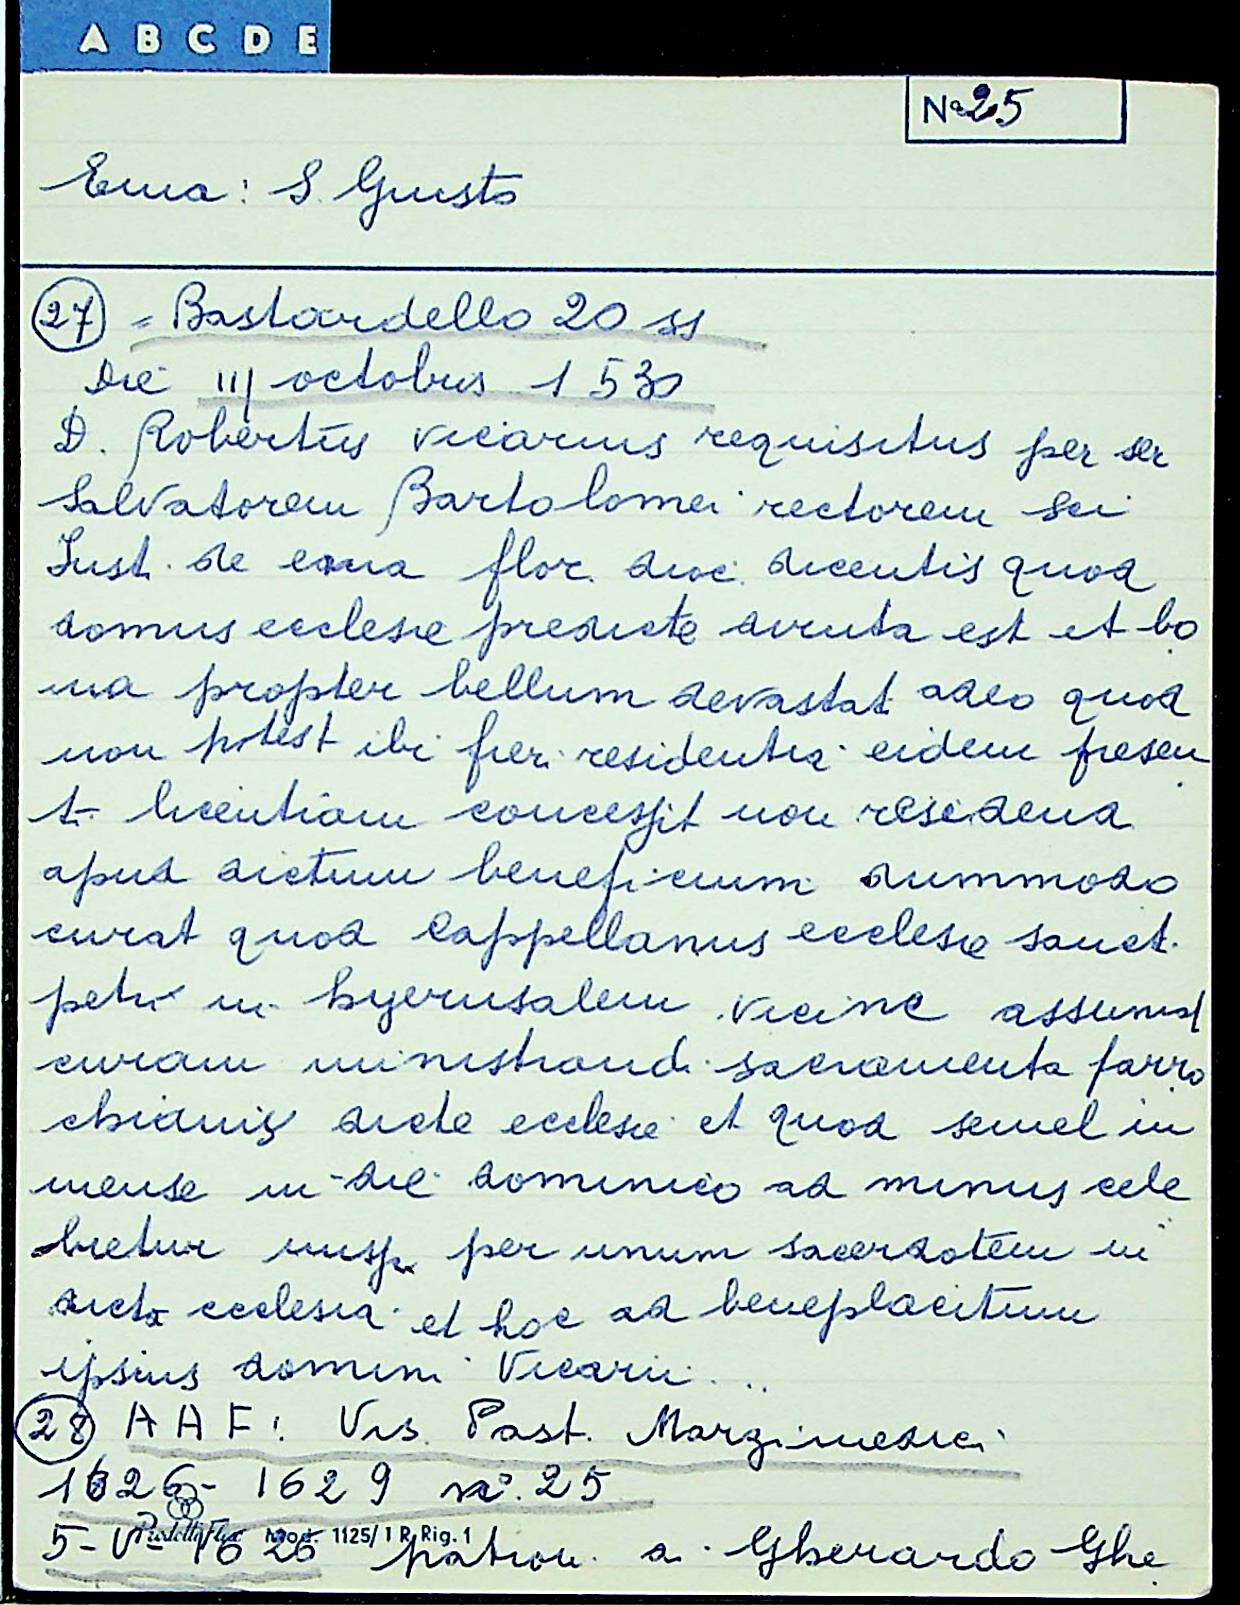 A B C D E
No 25
Ema: S. Giusto
27 = Bastardello 20 ss
Die III octobris 1530
D. Robertus vicarius requisitus per ser
Salvatorem Bartolomei rectorem sci
Iust. de ema flor. dioc. dicentis quod
domus ecclesie predicte diruta est et bo
na propter bellum devastat adeo quod
non potest ibi fieri residentia eidem presen
t. licentiam concessit non residend
apud dictum beneficium dummodo
curat quod Cappellanus ecclesie sanct.
petri in hyerusalem vicine assumat
curam ministrandi sacramenta parro
chianis dicte ecclesie et quod semel in
mense in die dominico ad minus cele
bretur per unum sacerdotem in
dicta ecclesia et hoc ad beneplacitum
ipsius domini Vicarii ...
28 AAF: Vis. Past. Marzimedici
1626-1629 n°. 25
5-V-1626 patron. a. Gherardo Ghe
Mod. 1125/1 R Rig. 1